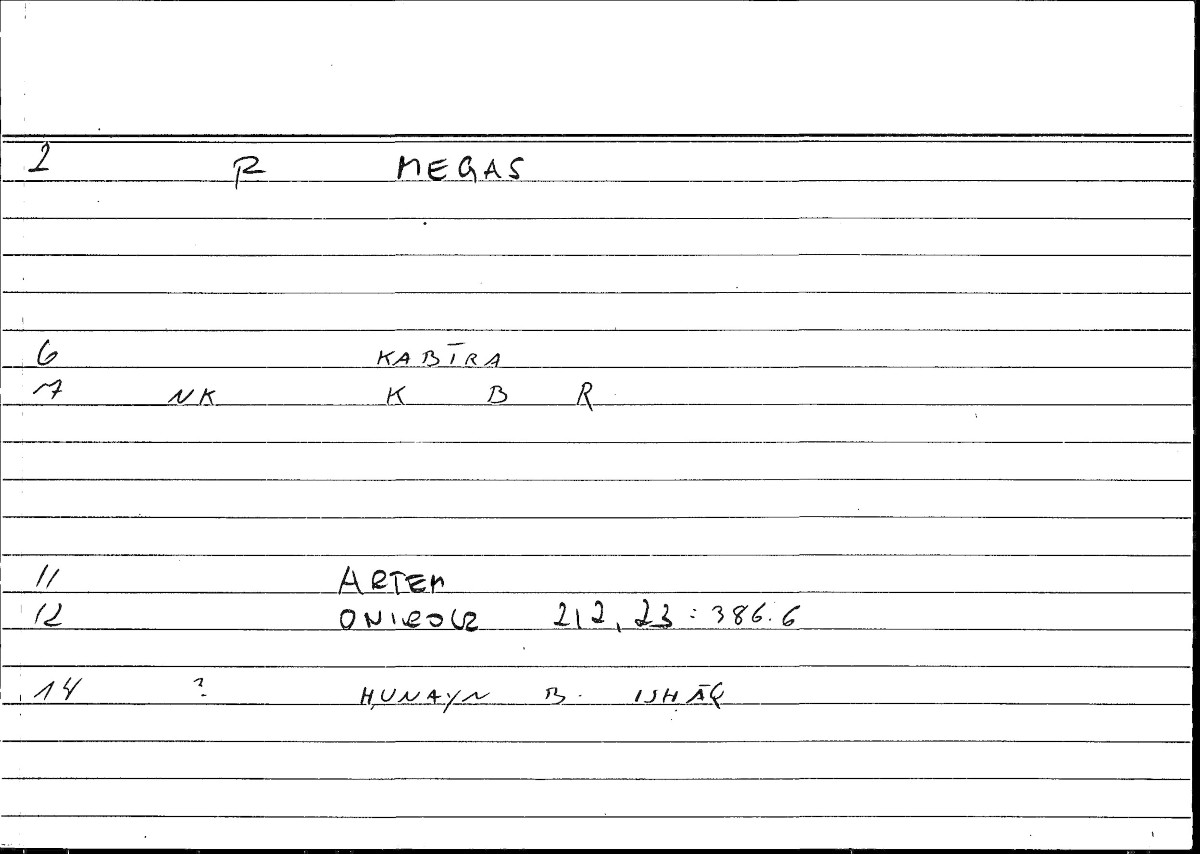 2 R MEGAS
6 KABĪRA
7 NK K B R
11 ARTEM
12 ONIROCR 212, 23 : 386.6
14 ? ḤUNAYN B. ISḤĀQ